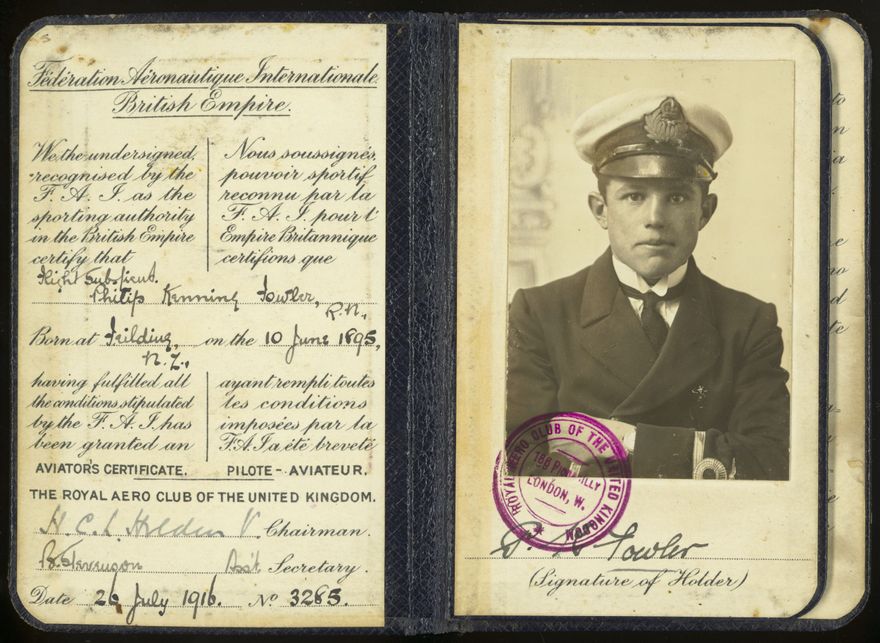 Fédération Aéronautique Internationale
British Empire.
We the undersigned,
recognised by the
F. A. I. as the
sporting authority
in the British Empire
certify that
Nous soussignés,
pouvoir sportif
reconnu par la
F. A. I. pour l'
Empire Britannique
certifions que
Flight Sub. Lieut.
Philip Kenning Fowler,
R.N.,
Born at Feilding, on the 10 June 1895,
N.Z.,
having fulfilled all
the conditions stipulated
by the F. A. I. has
been granted an
ayant rempli toutes
les conditions
imposées par la
F.A.I. a été breveté
AVIATOR'S CERTIFICATE. PILOTE-AVIATEUR.
THE ROYAL AERO CLUB OF THE UNITED KINGDOM.
H. C. L. Holden V. Chairman.
B. Stevenson Asst Secretary.
Date 26 July 1916. No 3285.
ROYAL AERO CLUB OF THE UNITED KINGDOM
166 PICCADILLY
LONDON, W.
P. K. Fowler
(Signature of Holder)